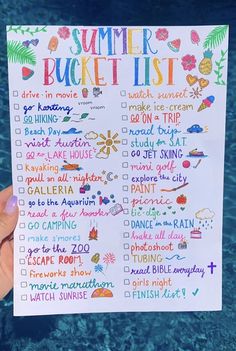 SUMMER
BUCKET LIST
drive-in movie
go karting
vroom
vroom
GO HIKING
Beach Day
visit Austin
GO to LAKE HOUSE
Kayaking
pull an all-nighter
GALLERIA
go to the Aquarium
read a few books
GO CAMPING
make s'mores
go to the ZOO
ESCAPE ROOM!
fireworks show
movie marathon
WATCH SUNRISE
watch sunset
make ice-cream
GO ON A TRIP
road trip
study for S.A.T.
GO JET SKIING
mini golf
explore the city
PAINT
picnic
tie-dye
DANCE in the RAIN
bake all day
photoshoot
TUBING
read BIBLE everyday
girls night
FINISH LIST!